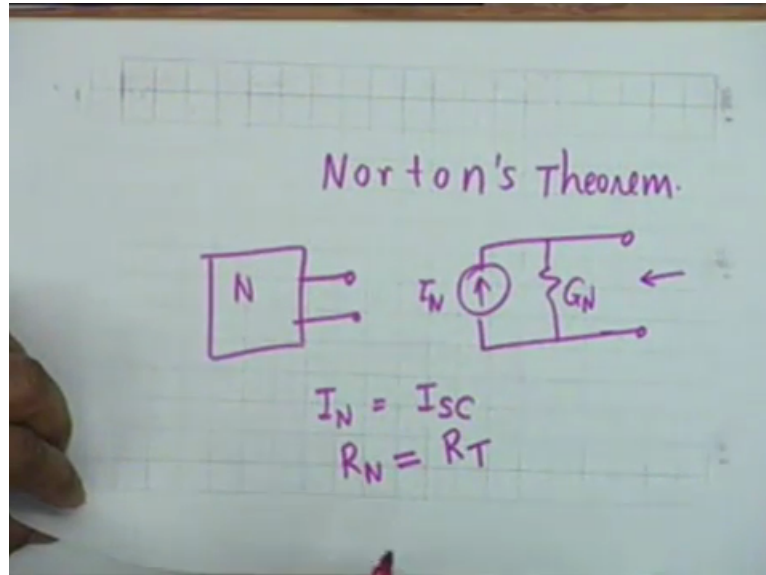 Norton's Theorem.
N
I_N G_N
I_N = I_SC
R_N = R_T